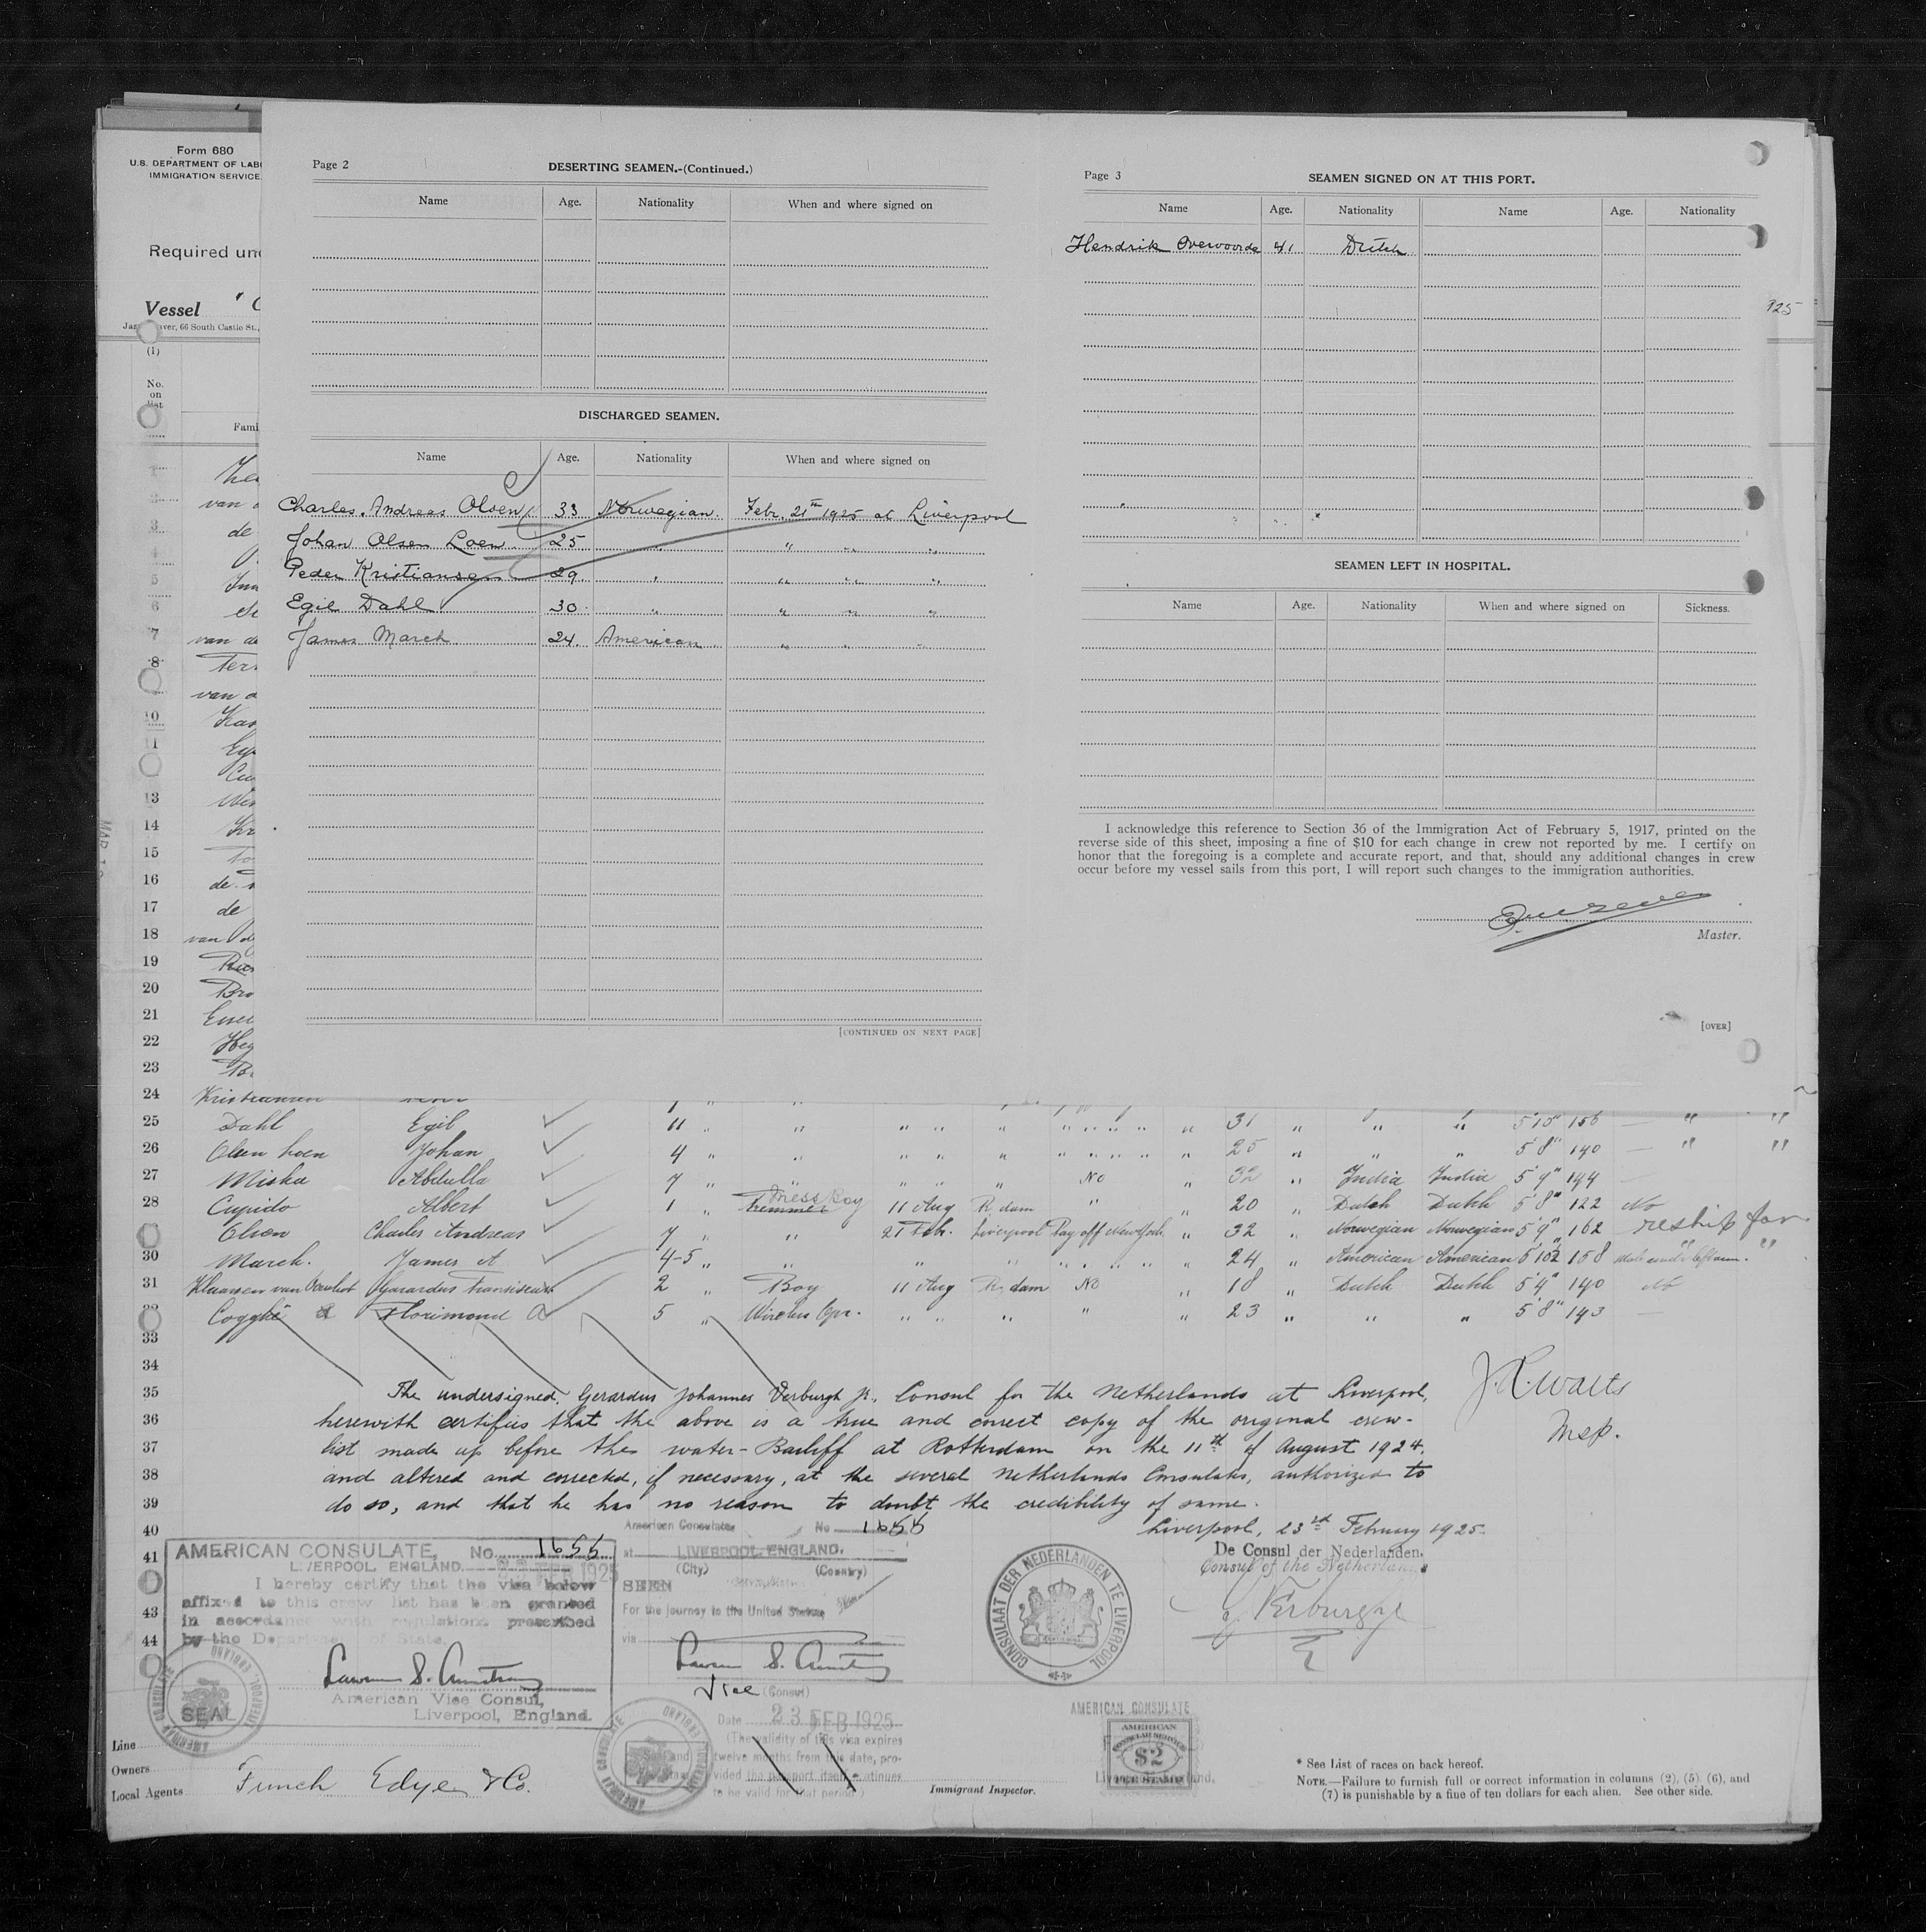 Form 680
U.S. DEPARTMENT OF LAB
IMMIGRATION SERVICE
Required un
Vessel
66 South Castle St.,
(1)
No. on list
Fami
Page 2
DESERTING SEAMEN.-(Continued.)
Name Age. Nationality When and where signed on
DISCHARGED SEAMEN.
Name Age. Nationality When and where signed on
Charles Andreas Olsen 33 Norwegian. Febr. 21st 1925 at Liverpool
Johan Olsen Loen 25 " " " "
Peder Kristiansen 29. " " " "
Egil Dahl 30 " " " "
James March 24. American " " "
[CONTINUED ON NEXT PAGE]
Page 3
SEAMEN SIGNED ON AT THIS PORT.
Name Age. Nationality Name Age. Nationality
Hendrik Overvoorde 41 Dutch
925
SEAMEN LEFT IN HOSPITAL.
Name Age. Nationality When and where signed on Sickness.
I acknowledge this reference to Section 36 of the Immigration Act of February 5, 1917, printed on the
reverse side of this sheet, imposing a fine of $10 for each change in crew not reported by me. I certify on
honor that the foregoing is a complete and accurate report, and that, should any additional changes in crew
occur before my vessel sails from this port, I will report such changes to the immigration authorities.
Master.
[OVER]
van d
3 de
5
6
7 van de
8
van d
10
11
13
14
15
16 de
17 de
18 van de
19
20 Bro
21
22
23
24 Kristiansen
25 Dahl Egil 11 " " " " " " " " " " 31 " " " 5'10" 156 — " "
26 Olsen Loen Johan 4 " " " " " " " " " " 25 " " " 5'8" 140 — " "
27 Miska Abdulla 7 " " " " " No " 32 " India India 5'9" 144 —
28 Cupido Albert 1 " trimmer Mess Boy 11 Aug R. dam " " 20 " Dutch Dutch 5'8" 122 No
Olsen Charles Andreas 7 " " 21 Febr. Liverpool Pay off New York " 32 " Norwegian Norwegian 5'9" 162 reship for
30 March. James A 4-5 " " " " " " " " " 24 " American American 5'10½ 158
31 Klaassen van Gerardus Franciscus 2 " Boy 11 Aug R. dam No " 18 " Dutch Dutch 5'4" 140 No
Cogghé Florimond 5 " Wireless Opr. " " " " " 23 " " " 5'8" 143 —
33
34
35 The undersigned, Gerardus Johannes Verburgh Jr., Consul for the Netherlands at Liverpool,
36 herewith certifies that the above is a true and correct copy of the original crew-
37 list made up before the water-Bailiff at Rotterdam on the 11th of August 1924.
38 and altered and corrected, if necessary, at the several Netherlands Consulates, authorized to
39 do so, and that he has no reason to doubt the credibility of same.
J. R. Watts
Insp.
40 Liverpool, 23rd February 1925.
41
43
44
De Consul der Nederlanden,
Consul of the Netherlands
CONSULAAT DER NEDERLANDEN TE LIVERPOOL
AMERICAN CONSULATE, No. 1655
LIVERPOOL, ENGLAND. 23 FEB 1925
I hereby certify that the visa below
affixed to this crew list has been granted
in accordance with regulations prescribed
by the Department of State.
American Vice Consul,
Liverpool, England.
SEAL
American Consulate No 1655
at LIVERPOOL, ENGLAND.
(City) (Country)
SEEN
For the journey to the United States
via
Vice (Consul)
Date 23 FEB 1925
(The validity of this visa expires
twelve months from this date, pro-
vided the passport itself continues
to be valid for that period.)
AMERICAN CONSULATE
AMERICAN
CONSULAR SERVICE
$2
FEE STAMP
Line
Owners
Local Agents Funch Edye & Co.
Immigrant Inspector.
* See List of races on back hereof.
NOTE.—Failure to furnish full or correct information in columns (2), (5), (6), and
(7) is punishable by a fine of ten dollars for each alien. See other side.